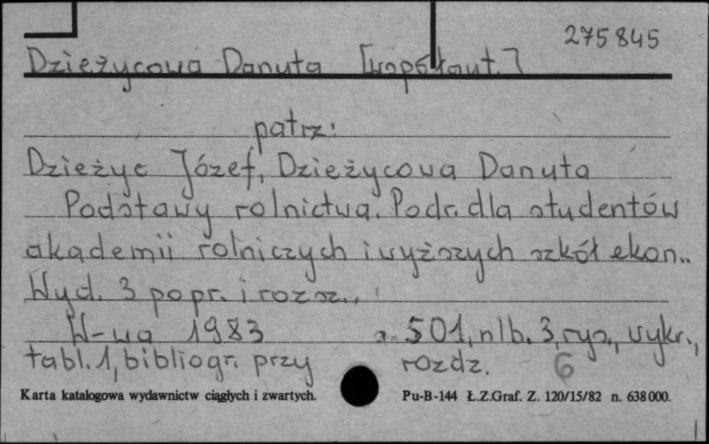 275845
Dzieżycowa Danuta [współaut.]
patrz:
Dzieżyc Józef, Dzieżycowa Danuta
Podstawy rolnictwa. Podr. dla studentów
akademii rolniczych i wyższych szkół ekon..
Wyd. 3 popr. i rozsz.,
W-wa 1983 s. 501, nlb. 3, rys., wykr.,
tabl. 1, bibliogr. przy rozdz. 6
Karta katalogowa wydawnictw ciągłych i zwartych. Pu-B-144 Ł.Z.Graf. Z. 120/15/82 n. 638000.